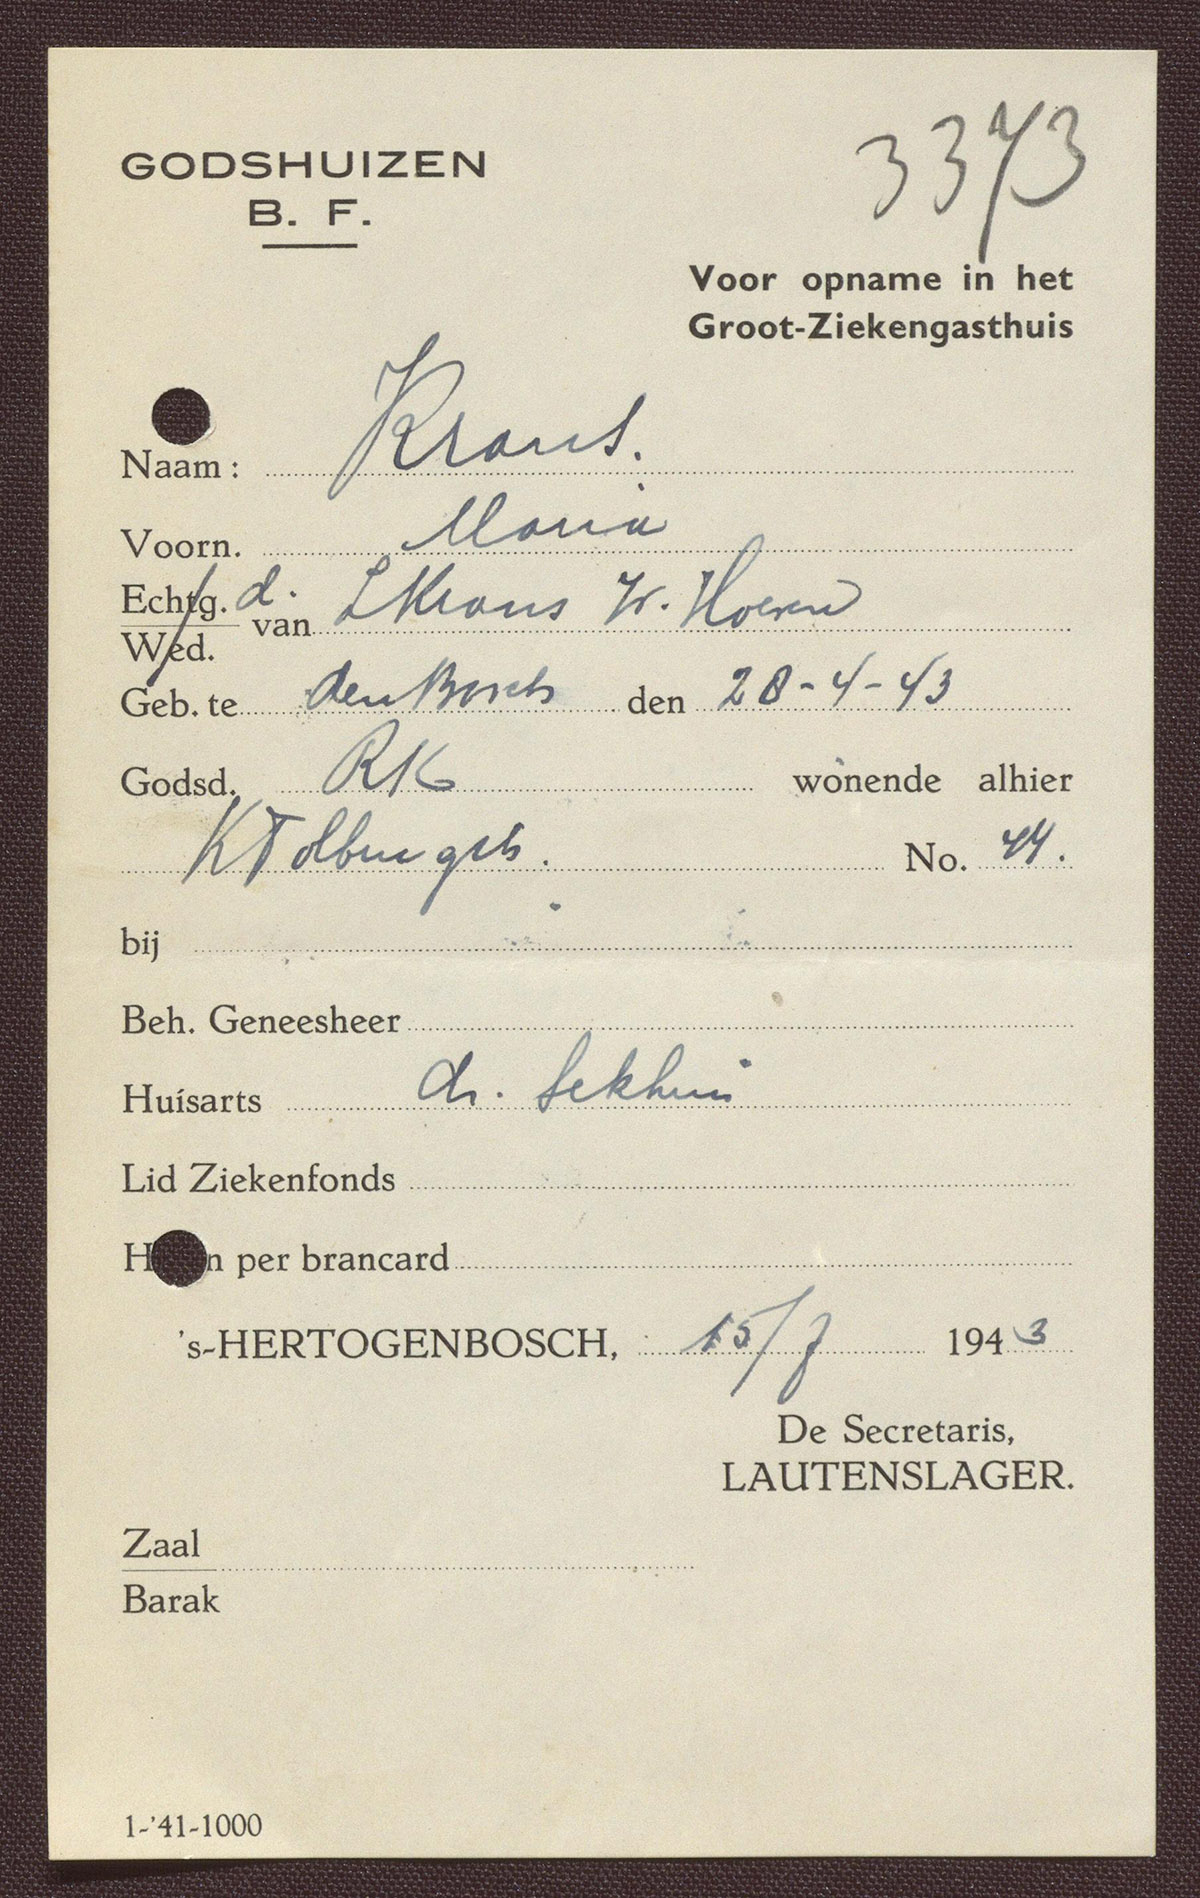 GODSHUIZEN
B. F.
3373
Voor opname in het
Groot-Ziekengasthuis
Naam: Krans.
Voorn. Maria
Echtg. d.
Wed. van L Krans
Geb. te den Bosch den 28-4-43
Godsd. RK wonende alhier
No. 44.
bij
Beh. Geneesheer
Huisarts dr.
Lid Ziekenfonds
H n per brancard
's-HERTOGENBOSCH, 15/7 1943
De Secretaris,
LAUTENSLAGER.
Zaal
Barak
1-'41-1000